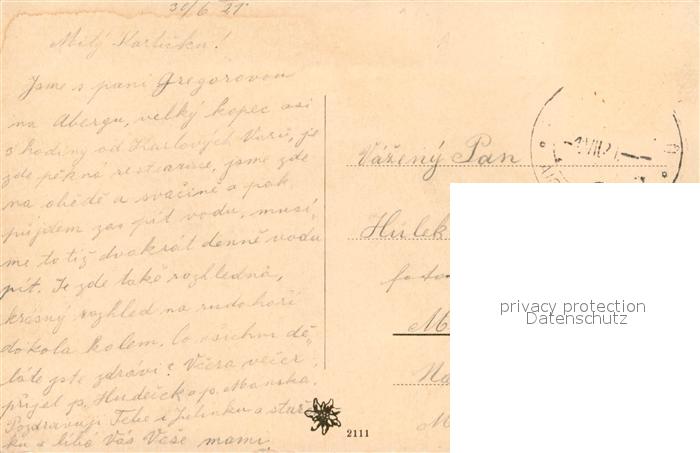 30/6 21
Milý Karlíčku!
Jsme s paní Gregorovou
na Abergu, velký kopec asi
3 hodiny od Karlových Varů, je
zde pěkná restaurace, jsme zde
na obědě a svačině a pak
půjdem zas pít vodu, musí-
me totiž dvakrát denně vodu
pít. Je zde také rozhledna,
krásný rozhled na rudohoří
dokola kolem. Co všichni dě-
láte jste zdrávi? Včera večer
přijel p. Hudeček a p. Manska.
Pozdravuji Tebe i Julinku a stař-
ku a líbá Vás Vaše mami.
Vážený Pan
Hulek
foto
M
Na
M
VII 21
2111
privacy protection
Datenschutz